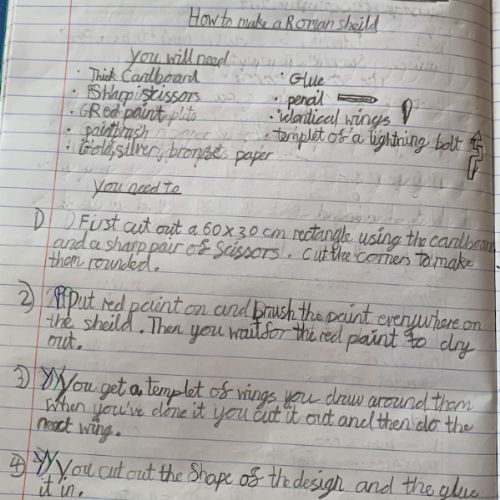 How to make a Roman sheild
you will need
· Thick Cardboard · Glue
· Sharp scissors · pencil
· Red paint · identical wings
· paintbrush · templet of a lightning bolt
· Gold, silver, bronze paper
you need to
1) First cut out a 60 x 30 cm rectangle using the cardboard
and a sharp pair of scissors. Cut the corners to make
them rounded.
2) put red paint on and brush the paint everywhere on
the sheild. Then you wait for the red piaint to dry
out.
3) You get a templet of wings you draw around them
When you've done it you cut it out and then do the
next wing.
4) You cut out the shape of the design and the glue
it in.